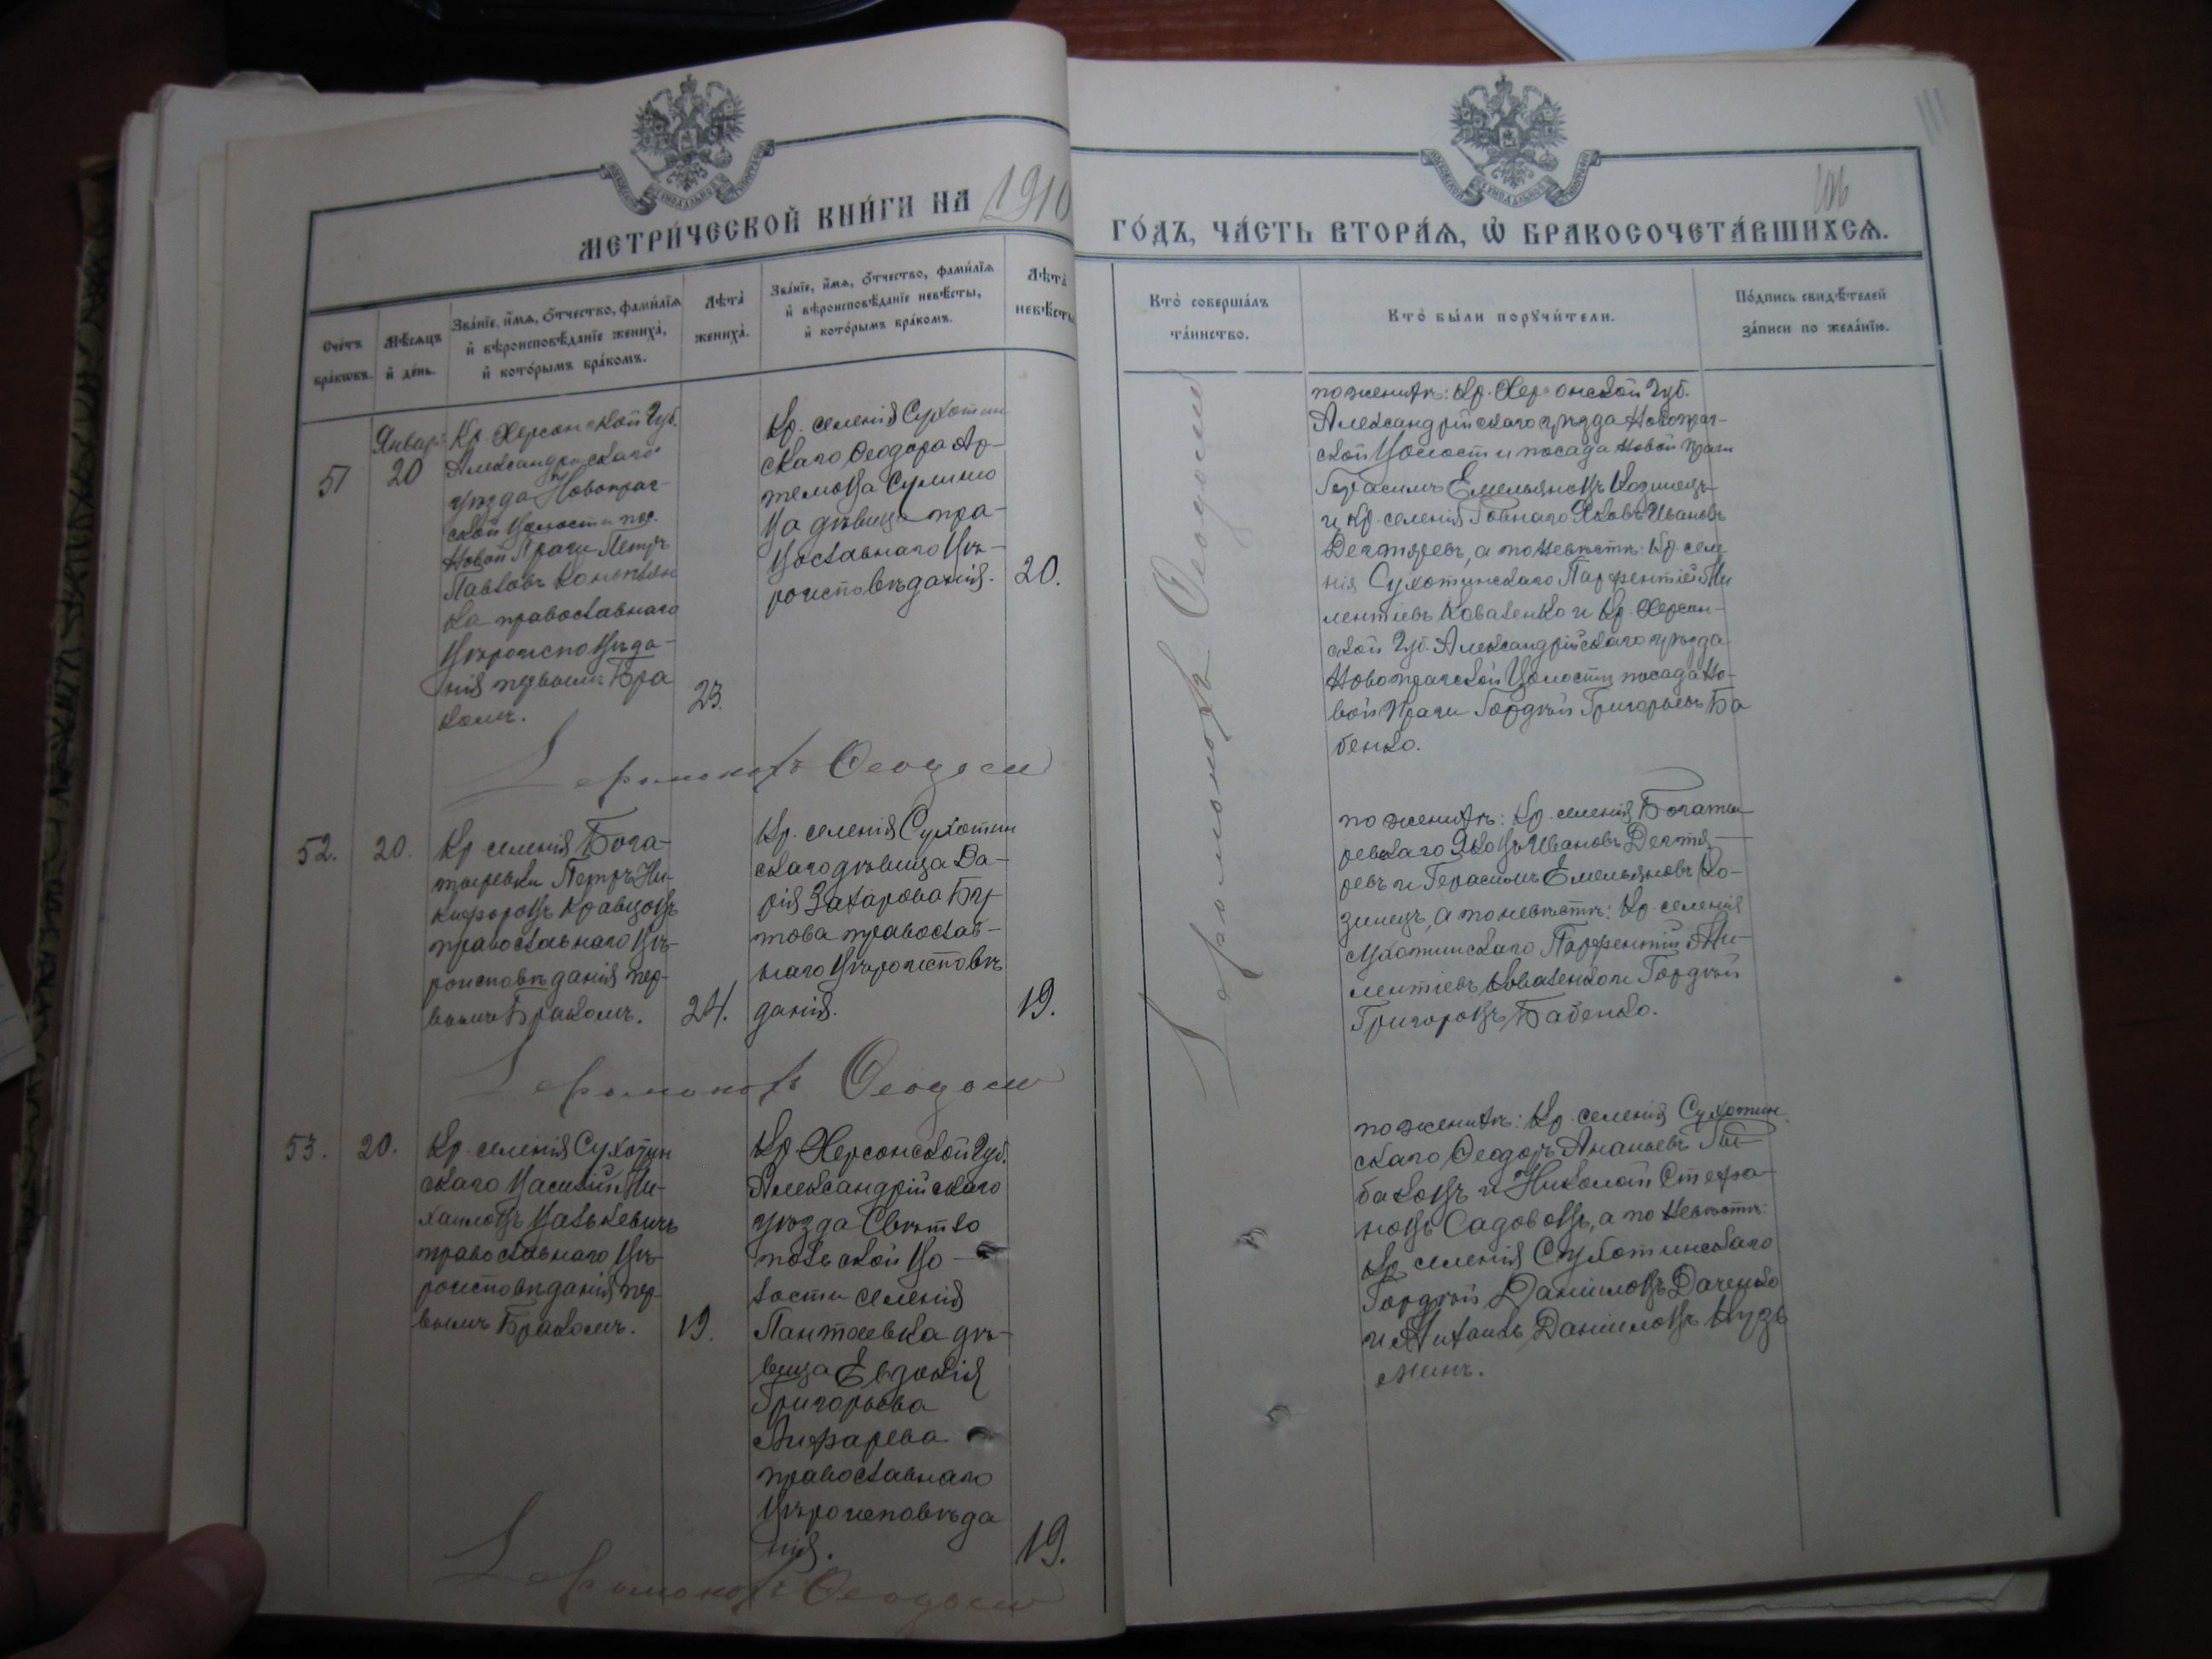 МЕТРИ́ЧЕСКОЙ КНИ́ГИ НА 1910
ГО́ДЪ, ЧА́СТЬ ВТОРА́Ѧ, Ѡ҆ БРАКОСОЧЕТА́ВШИХСѦ.
106
Сче́тъ
бра́кѡвъ.
Мѣ́сѧцъ
и҆ де́нь.
Зва́нїе, и҆́мѧ, ѻ҆́тчество, фами́лїѧ
и҆ вѣроисповѣ́данїе жениха̀,
и҆ кото́рымъ бра́комъ.
Лѣта̀
жениха̀.
Зва́нїе, и҆́мѧ, ѻ҆́тчество, фами́лїѧ
и҆ вѣроисповѣ́данїе невѣ́сты,
и҆ кото́рымъ бра́комъ.
Лѣта̀
невѣ́сты
Кто̀ соверша́лъ
та́инство.
Кто̀ бы́ли порꙋчи́тели.
По́дпись свидѣ́телей
за́писи по жела́нїю.
51
Январ.
20
Кр. Херсонской Губ.
Александрійскаго
уѣзда Новопраг-
ской Волости пос.
Новой Праги Петръ
Павловъ Конопьян
ка православнаго
Вѣроисповѣда-
нія первымъ Бра
комъ.
23.
Кр. селенія Сухотин
скаго Ѳеодора Ар-
темова Сулимо
ва дѣвица пра-
вославнаго Вѣ-
роисповѣданія.
20.
Іеромонахъ Ѳеодосій
по женихѣ: Кр. Херсонской Губ.
Александрійскаго уѣзда Новопраг-
ской Волости посада Новой Праги
Герасимъ Емельяновъ Козинецъ
и Кр. селенія Іовнаго Яковъ Ивановъ
Дегтяревъ, а по невѣстѣ: Кр. селе
нія Сухотинскаго Парфентій Ми
лентіевъ Коваленко и Кр. Херсон-
ской Губ. Александрійскаго уѣзда
Новопрагской Волости посада Но-
вой Праги Гордѣй Григорьевъ Ба
бенко.
Іеромонахъ Ѳеодосій
52.
20.
Кр селенія Бога-
тыревки Петръ Ни-
кифоровъ Кравцовъ
православнаго Вѣ-
роисповѣданія пер-
вымъ Бракомъ.
24.
Кр. селенія Сухотин
скаго дѣвица Да-
рія Захарова Бу
това православ-
наго Вѣроисповѣ
данія.
19.
Іеромонахъ Ѳеодосій
по женихѣ: Кр. селенія Богаты
ревскаго Яковъ Ивановъ Дегтя-
ревъ и Герасимъ Емельяновъ Ко-
зинецъ, а по невѣстѣ: Кр. селенія
Сухотинскаго Парфентій Ми-
лентіевъ Коваленко и Гордѣй
Григоровъ Бабенко.
53.
20.
Кр. селенія Сухотин
скаго Василій Ми-
хаиловъ Валькевичъ
православнаго Вѣ-
роисповѣданія пер-
вымъ Бракомъ.
19.
Кр Херсонской Губ.
Александрійскаго
уѣзда Свѣтло
польской Во-
лости селенія
Пантаевка дѣ-
вица Евдокія
Григорьева
православнаго
Вѣроисповѣда
нія.
19.
Іеромонахъ Ѳеодосій
по женихѣ: Кр. селенія Сухотин
скаго Ѳеодоръ Ананьевъ Ры-
баковъ и Николай Стефа-
новъ Садововъ, а по невѣстѣ:
Кр селенія Сухотинскаго
Гордѣй Даниловъ Даченко
и Михаилъ Даниловъ Кузь
минъ.